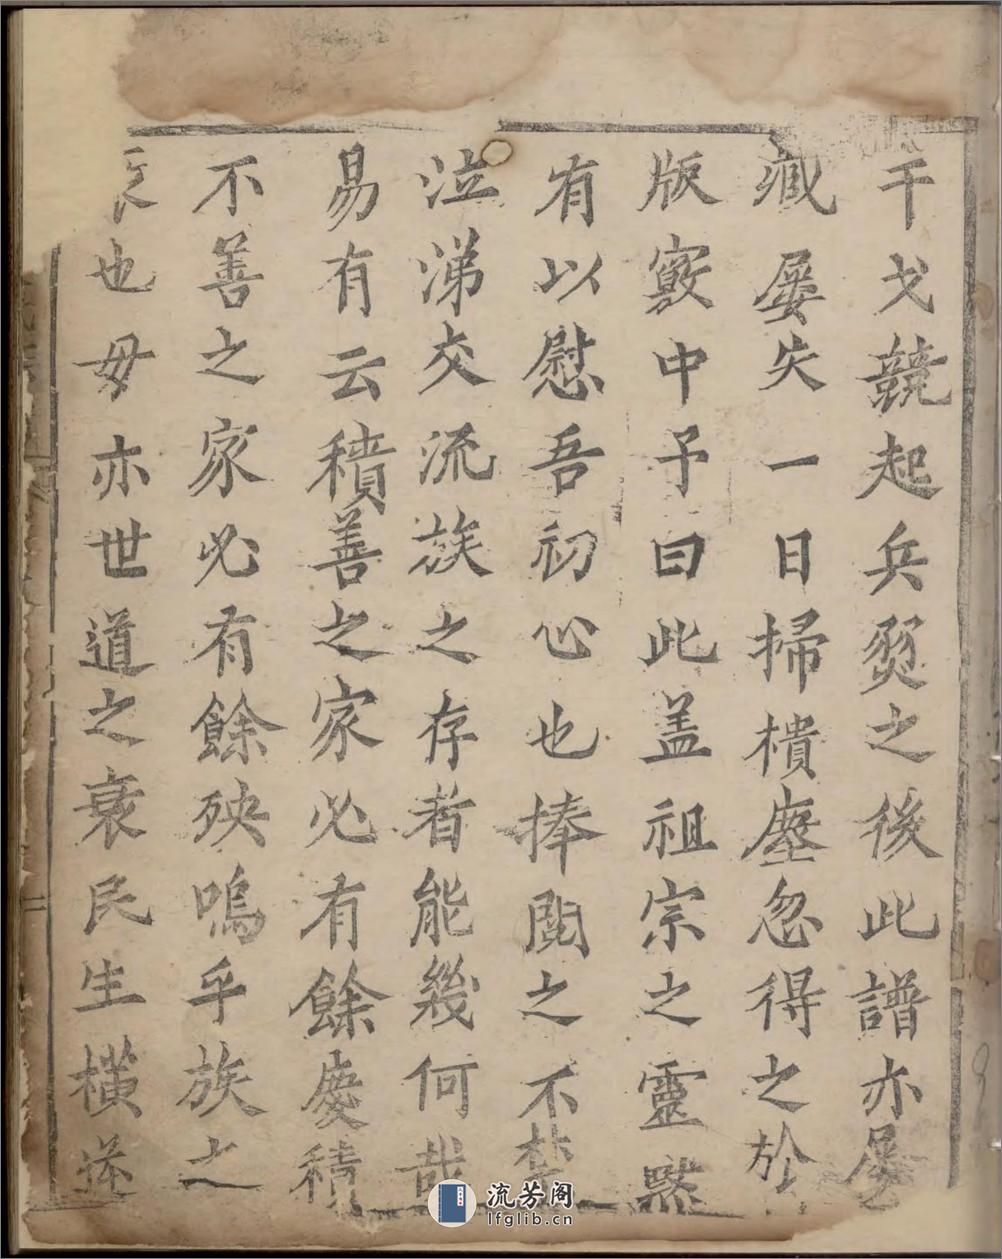 干戈競起兵燹之後此譜亦屢
藏屡失一日掃樻塵忽得之於
版竅中予曰此盖祖宗之靈黙
有以慰吾初心也捧閱之不禁
泣涕交流族之存者能幾何哉
易有云積善之家必有餘慶積
不善之家必有餘殃嗚乎族之
衰也毋亦世道之衰民生橫逆
流芳阁
lfglib.cn